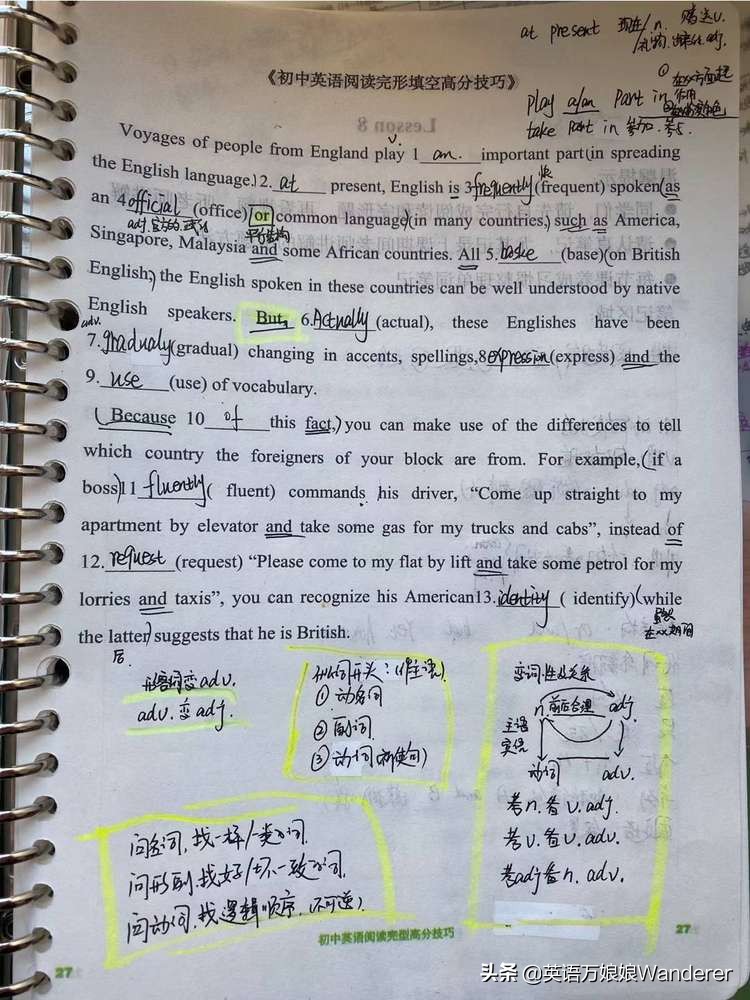 at present 现在/n. 赠送v.
礼物. adj.
《初中英语阅读完形填空高分技巧》
① 在xx方面起
作用
play a/an part in
take part in 参加.
Voyages of people from England play 1 an. important part(in spreading
the English language.)2. at present, English is 3 frequently(frequent) spoken(as
an 4 official (office) or common language)(in many countries,) such as America,
adj. 官方的. 正式
平行结构
Singapore, Malaysia and some African countries. All 5. (base)(on British
English,) the English spoken in these countries can be well understood by native
English speakers. But, 6. Actually (actual), these Englishes have been
adv.
7. gradualy(gradual) changing in accents, spellings,8 expression(express) and the
9. use (use) of vocabulary.
(Because 10 of this fact,) you can make use of the differences to tell
which country the foreigners of your block are from. For example,(if a
boss)11 fluently( fluent) commands his driver, “Come up straight to my
apartment by elevator and take some gas for my trucks and cabs”, instead of
12. request (request) “Please come to my flat by lift and take some petrol for my
lorries and taxis”, you can recognize his American13. identity ( identify)(while
the latter) suggests that he is British.
后
形容词变adv.
adv. 变 adj.
开头:(作主语)
① 动名词
② 副词
③ 动词(祈使句)
变词:性
n. 前后合理 adj.
主语
宾语
动词 adv.
考n. 看 v. adj.
考v. 看 v. adv.
考adj 看 n. adv.
问名词, 找一样/一类的词.
问形副, 找好/坏一致的词.
问动词, 找逻辑顺序. (不可逆)
初中英语阅读完型高分技巧
27
27
头条 @英语万娘娘Wanderer